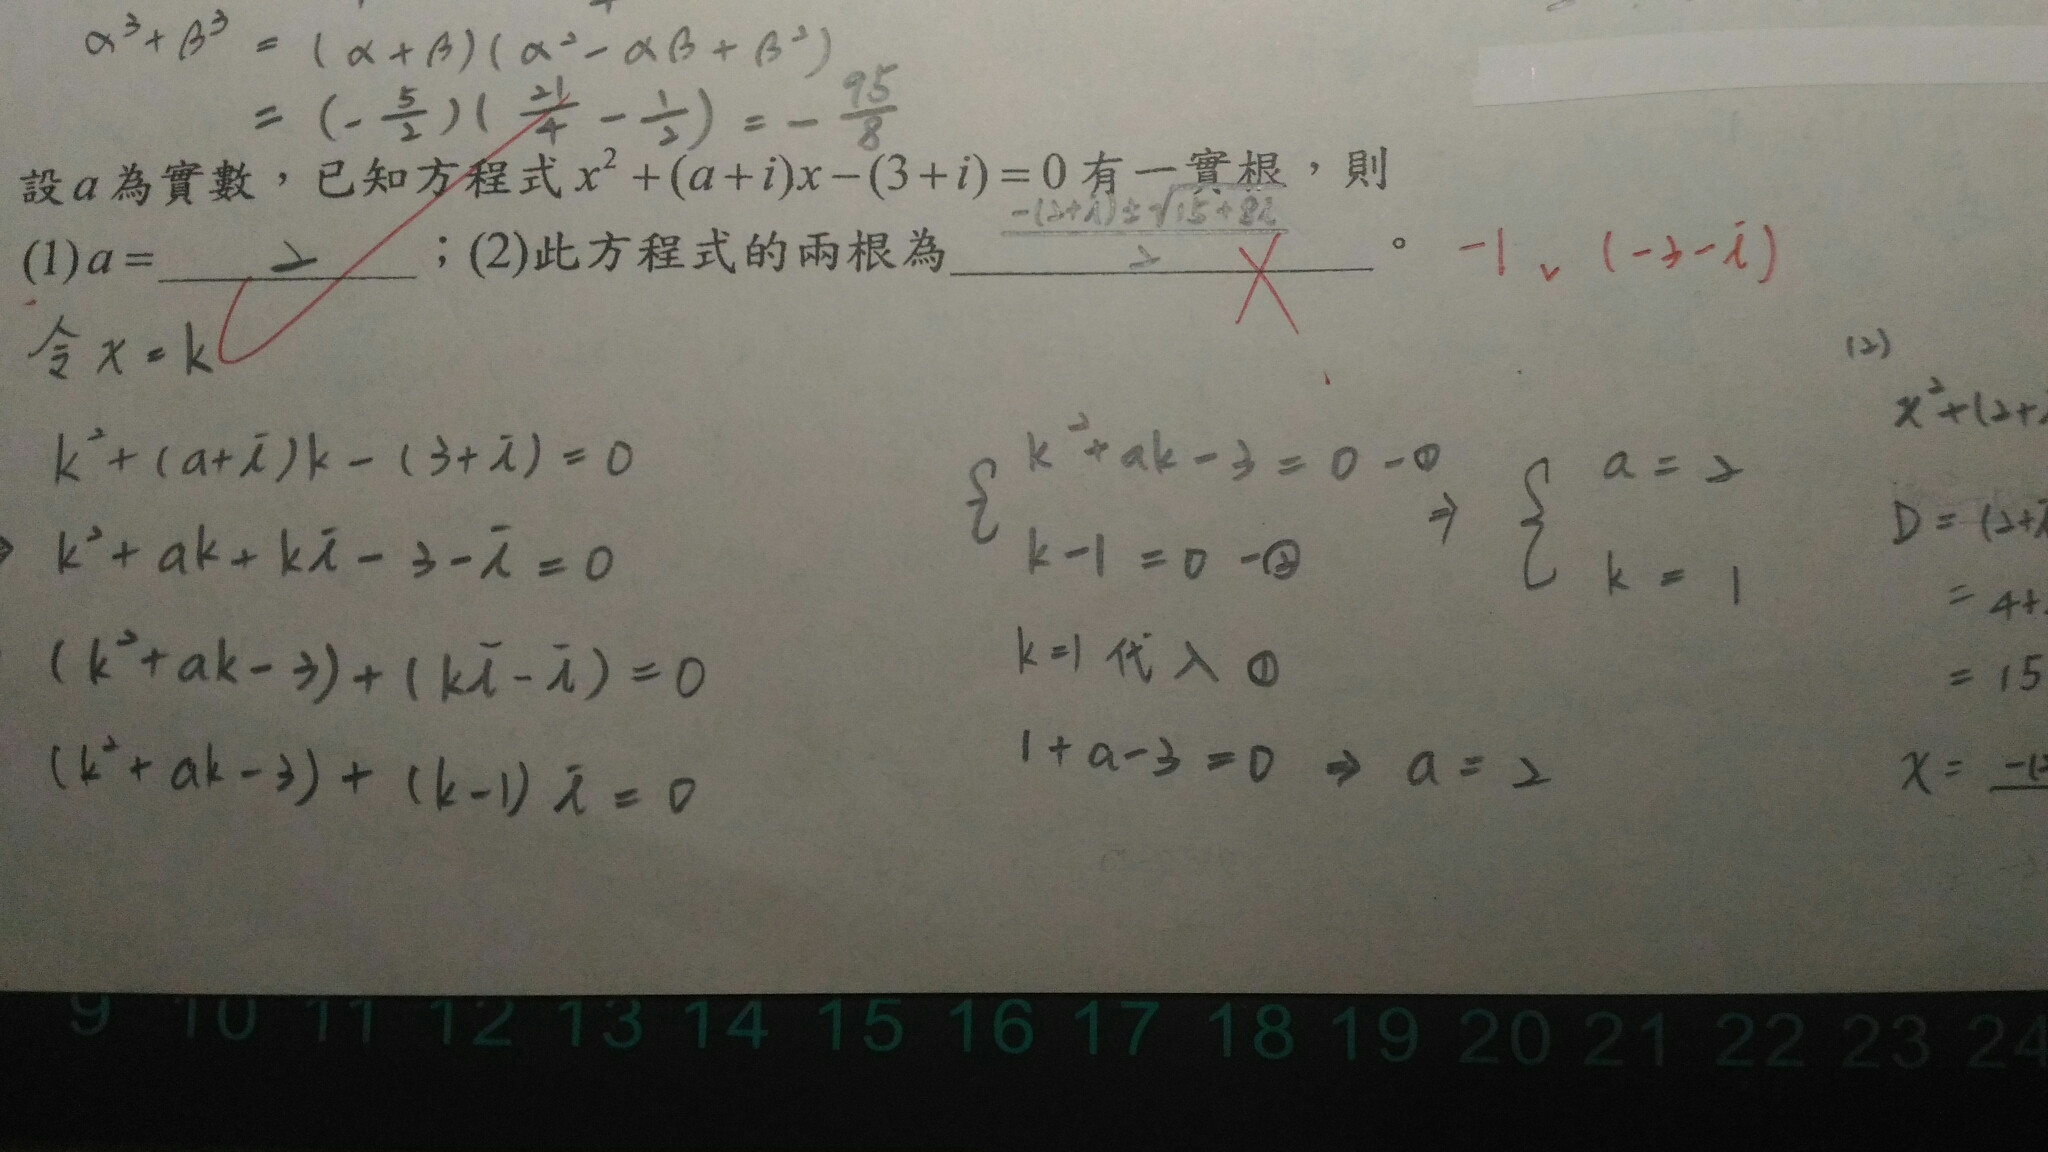 α³+β³ = (α+β)(α²-αβ+β²)
= (-5/2)(21/4 - 1/2) = -95/8
設a為實數，已知方程式x²+(a+i)x-(3+i)=0有一實根，則
(1)a= 2 ；(2)此方程式的兩根為 (-(2+i)±√(15+8i))/2 。 -1、(-3-i)
令 x=k
k²+(a+i)k-(3+i)=0
k²+ak+ki-3-i=0
(k²+ak-3)+(ki-i)=0
(k²+ak-3)+(k-1)i=0
{ k²+ak-3=0 -① ⇒ { a=2
k-1=0 -② k=1
k=1代入①
1+a-3=0 ⇒ a=2
(2)
x²+(2+
D=(2+i
=4+
=15
x=
9 10 11 12 13 14 15 16 17 18 19 20 21 22 23 24